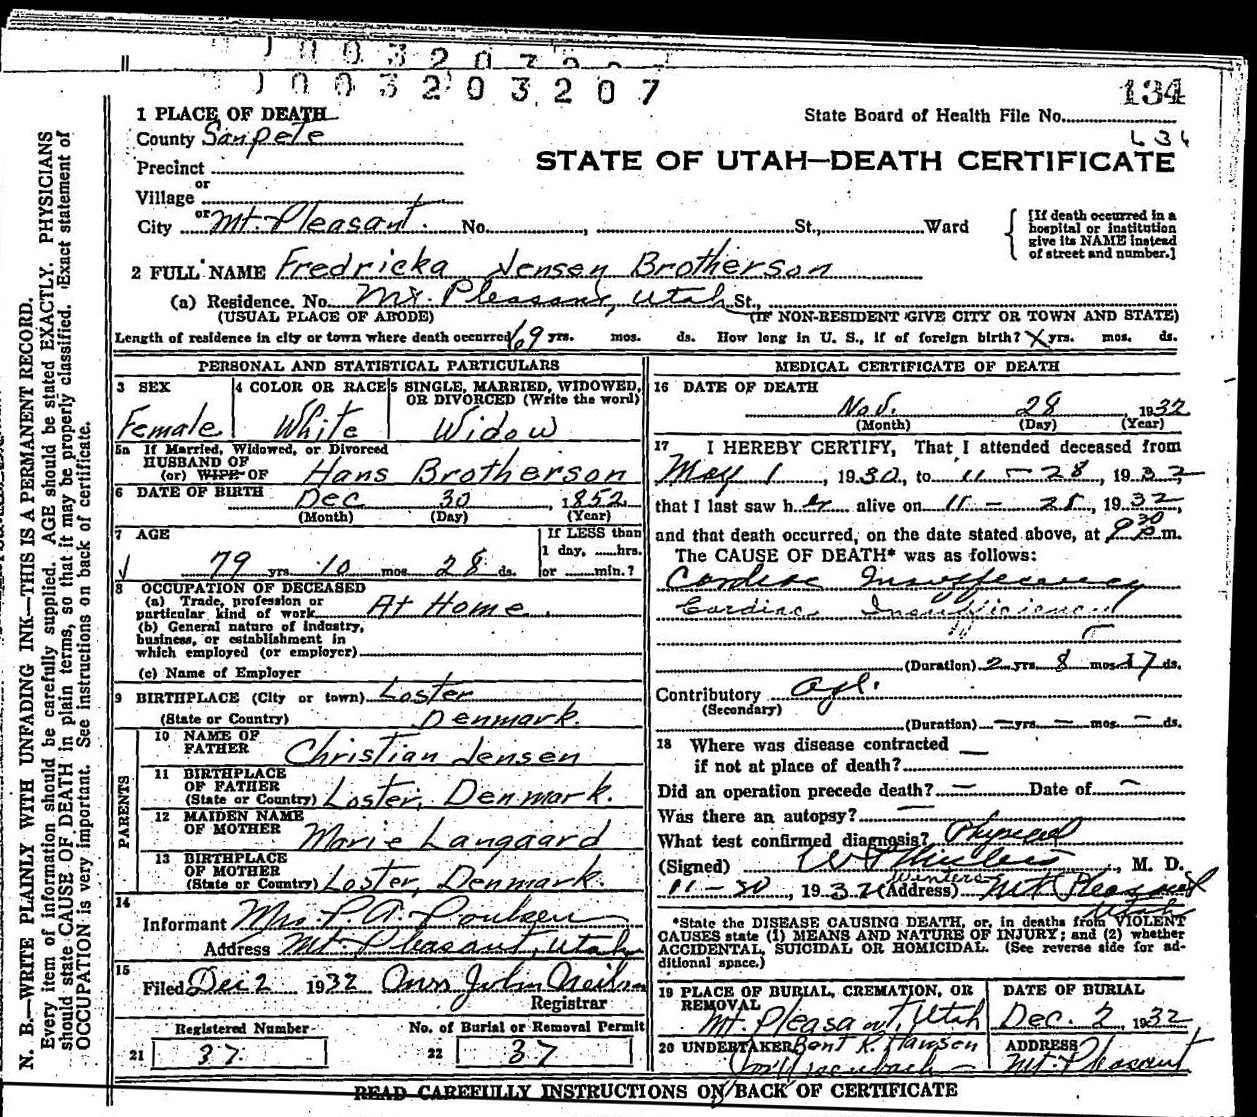 1003203207
1003203207
134
State Board of Health File No.
1 PLACE OF DEATH
County Sanpete
STATE OF UTAH—DEATH CERTIFICATE
Precinct
or
Village
or
City Mt. Pleasant. No. , St., Ward
[If death occurred in a hospital or institution give its NAME instead of street and number.]
2 FULL NAME Fredricka Jensen Brotherson
(a) Residence. No. Mt. Pleasant, Utah St.,
(USUAL PLACE OF ABODE) (IF NON-RESIDENT GIVE CITY OR TOWN AND STATE)
Length of residence in city or town where death occurred 69 yrs. mos. ds. How long in U. S., if of foreign birth? X yrs. mos. ds.
PERSONAL AND STATISTICAL PARTICULARS
3 SEX
Female
4 COLOR OR RACE
White
5 SINGLE, MARRIED, WIDOWED,
OR DIVORCED (Write the word)
Widow
5a If Married, Widowed, or Divorced
HUSBAND OF
(or) WIFE OF Hans Brotherson
6 DATE OF BIRTH Dec 30, 1852
(Month) (Day) (Year)
7 AGE
79 yrs. 10 mos. 28 ds.
If LESS than
1 day, ......hrs.
or ......min.?
8 OCCUPATION OF DECEASED
(a) Trade, profession or
particular kind of work At Home
(b) General nature of industry,
business, or establishment in
which employed (or employer)
(c) Name of Employer
9 BIRTHPLACE (City or town) Loster
(State or Country) Denmark.
PARENTS
10 NAME OF
FATHER Christian Jensen
11 BIRTHPLACE
OF FATHER
(State or Country) Loster, Denmark.
12 MAIDEN NAME
OF MOTHER Marie Langaard
13 BIRTHPLACE
OF MOTHER
(State or Country) Loster, Denmark.
14
Informant Mrs. P.A. Poulsen
Address Mt. Pleasant, Utah
15
Filed Dec 2 1932 John Neilson
Registrar
Registered Number
21 37
No. of Burial or Removal Permit
22 37
MEDICAL CERTIFICATE OF DEATH
16 DATE OF DEATH
Nov. 28, 1932
(Month) (Day) (Year)
17 I HEREBY CERTIFY, That I attended deceased from
May 1, 1930, to 11-28, 1932,
that I last saw her alive on 11-28, 1932,
and that death occurred, on the date stated above, at 9 30 P m.
The CAUSE OF DEATH* was as follows:
Cardiac Insufficiency
Cardiac Insufficiency
(Duration) 2 yrs. 8 mos. 17 ds.
Contributory Age.
(Secondary)
(Duration) — yrs. — mos. — ds.
18 Where was disease contracted —
if not at place of death?
Did an operation precede death? — Date of —
Was there an autopsy? —
What test confirmed diagnosis? Physical
(Signed) , M. D.
Winters
11-30, 1932 (Address) Mt Pleasant
Utah
*State the DISEASE CAUSING DEATH, or, in deaths from VIOLENT
CAUSES state (1) MEANS AND NATURE OF INJURY; and (2) whether
ACCIDENTAL, SUICIDAL OR HOMICIDAL. (See reverse side for ad-
ditional space.)
19 PLACE OF BURIAL, CREMATION, OR
REMOVAL
Mt. Pleasant, Utah
DATE OF BURIAL
Dec. 2, 1932
20 UNDERTAKER Bent R. Hansen
ADDRESS
Mt. Pleasant
READ CAREFULLY INSTRUCTIONS ON BACK OF CERTIFICATE
N. B.—WRITE PLAINLY WITH UNFADING INK—THIS IS A PERMANENT RECORD.
Every item of information should be carefully supplied. AGE should be stated EXACTLY. PHYSICIANS
should state CAUSE OF DEATH in plain terms, so that it may be properly classified. Exact statement of
OCCUPATION is very important. See instructions on back of certificate.